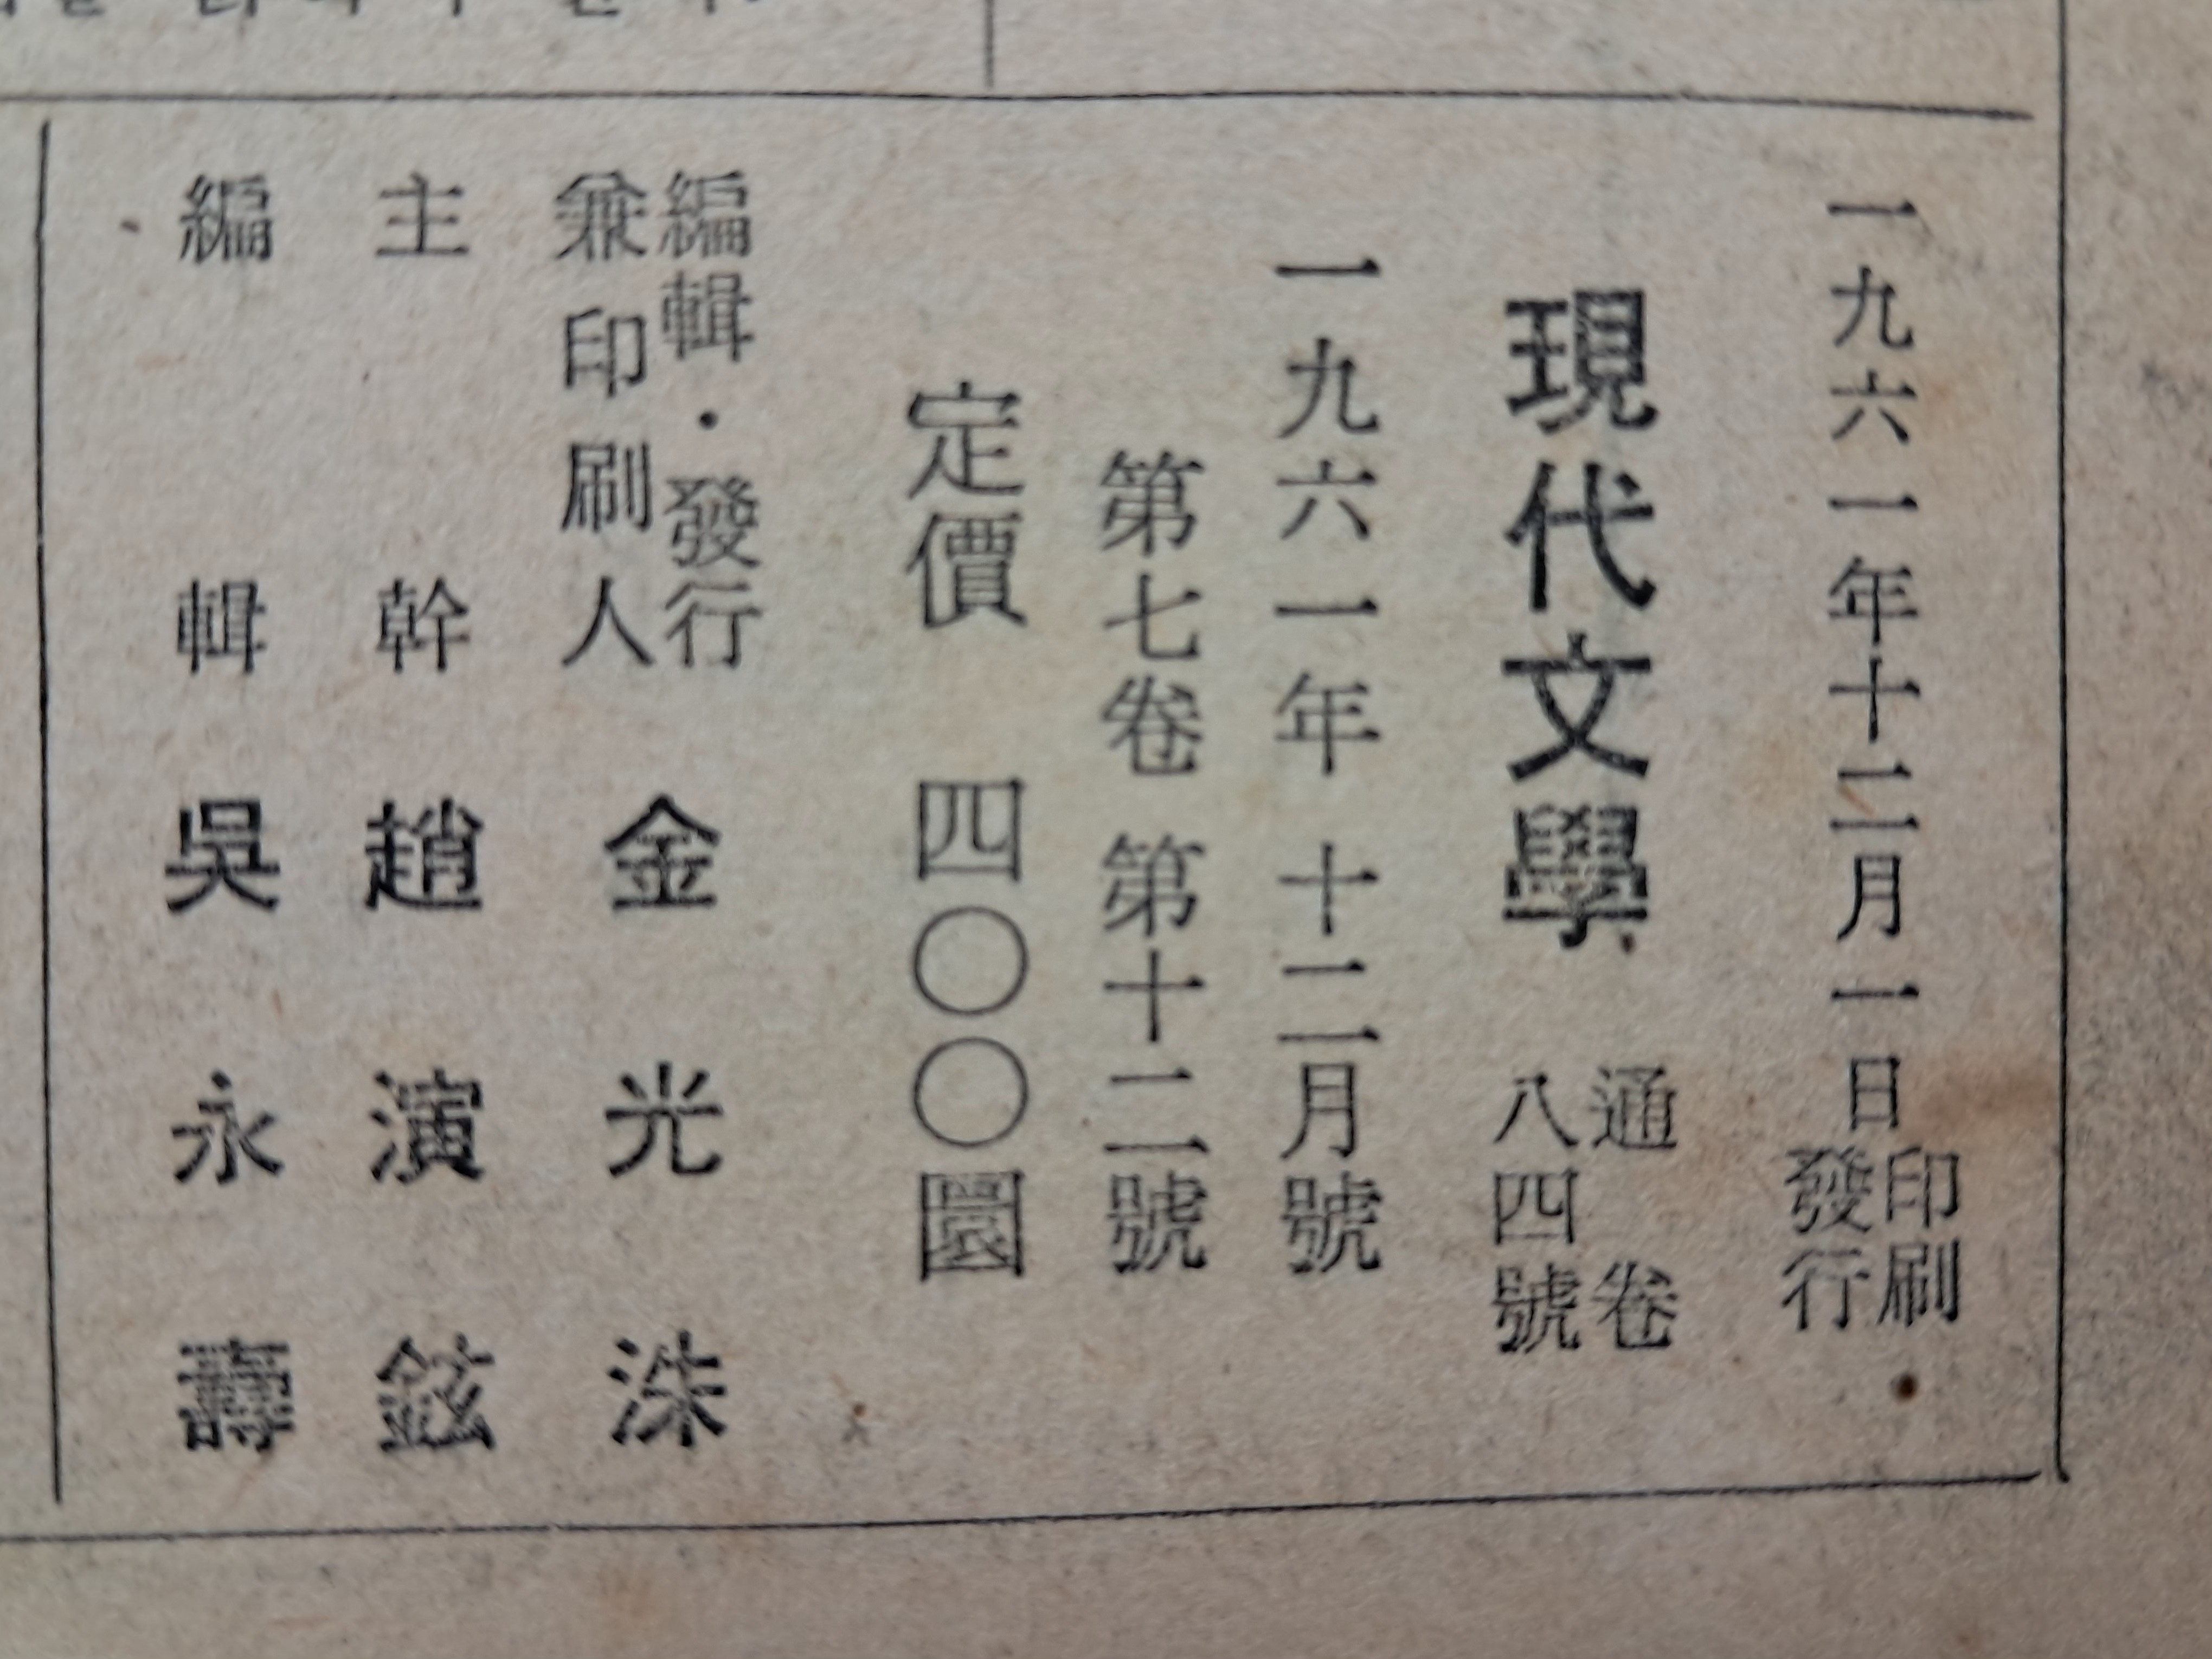 一九六一年十二月一日印刷・發行
現代文學 通卷八四號
一九六一年十二月號
第七卷 第十二號
定價 四〇〇圜
編輯・發行兼印刷人 金光洙
主幹 趙演鉉
編輯 吳永壽